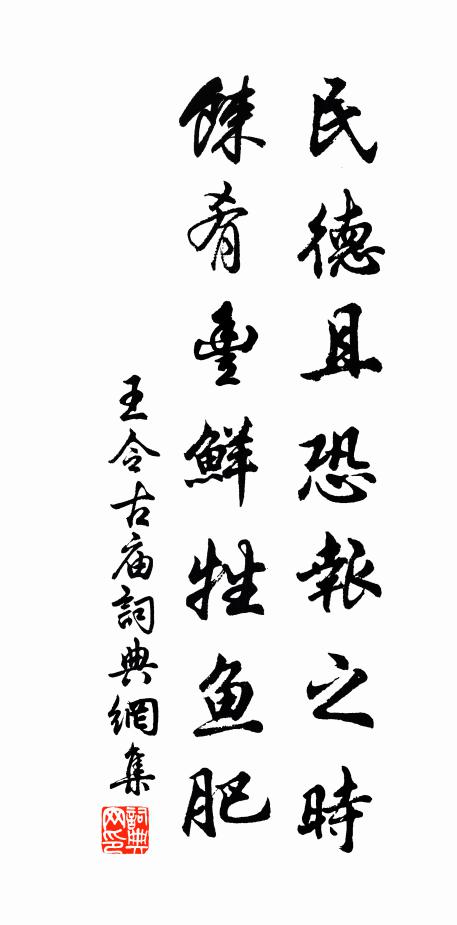 民德且恐報之時
餗肴豐鮮牲鱼肥
王令古庙詞典網集
詞典网印